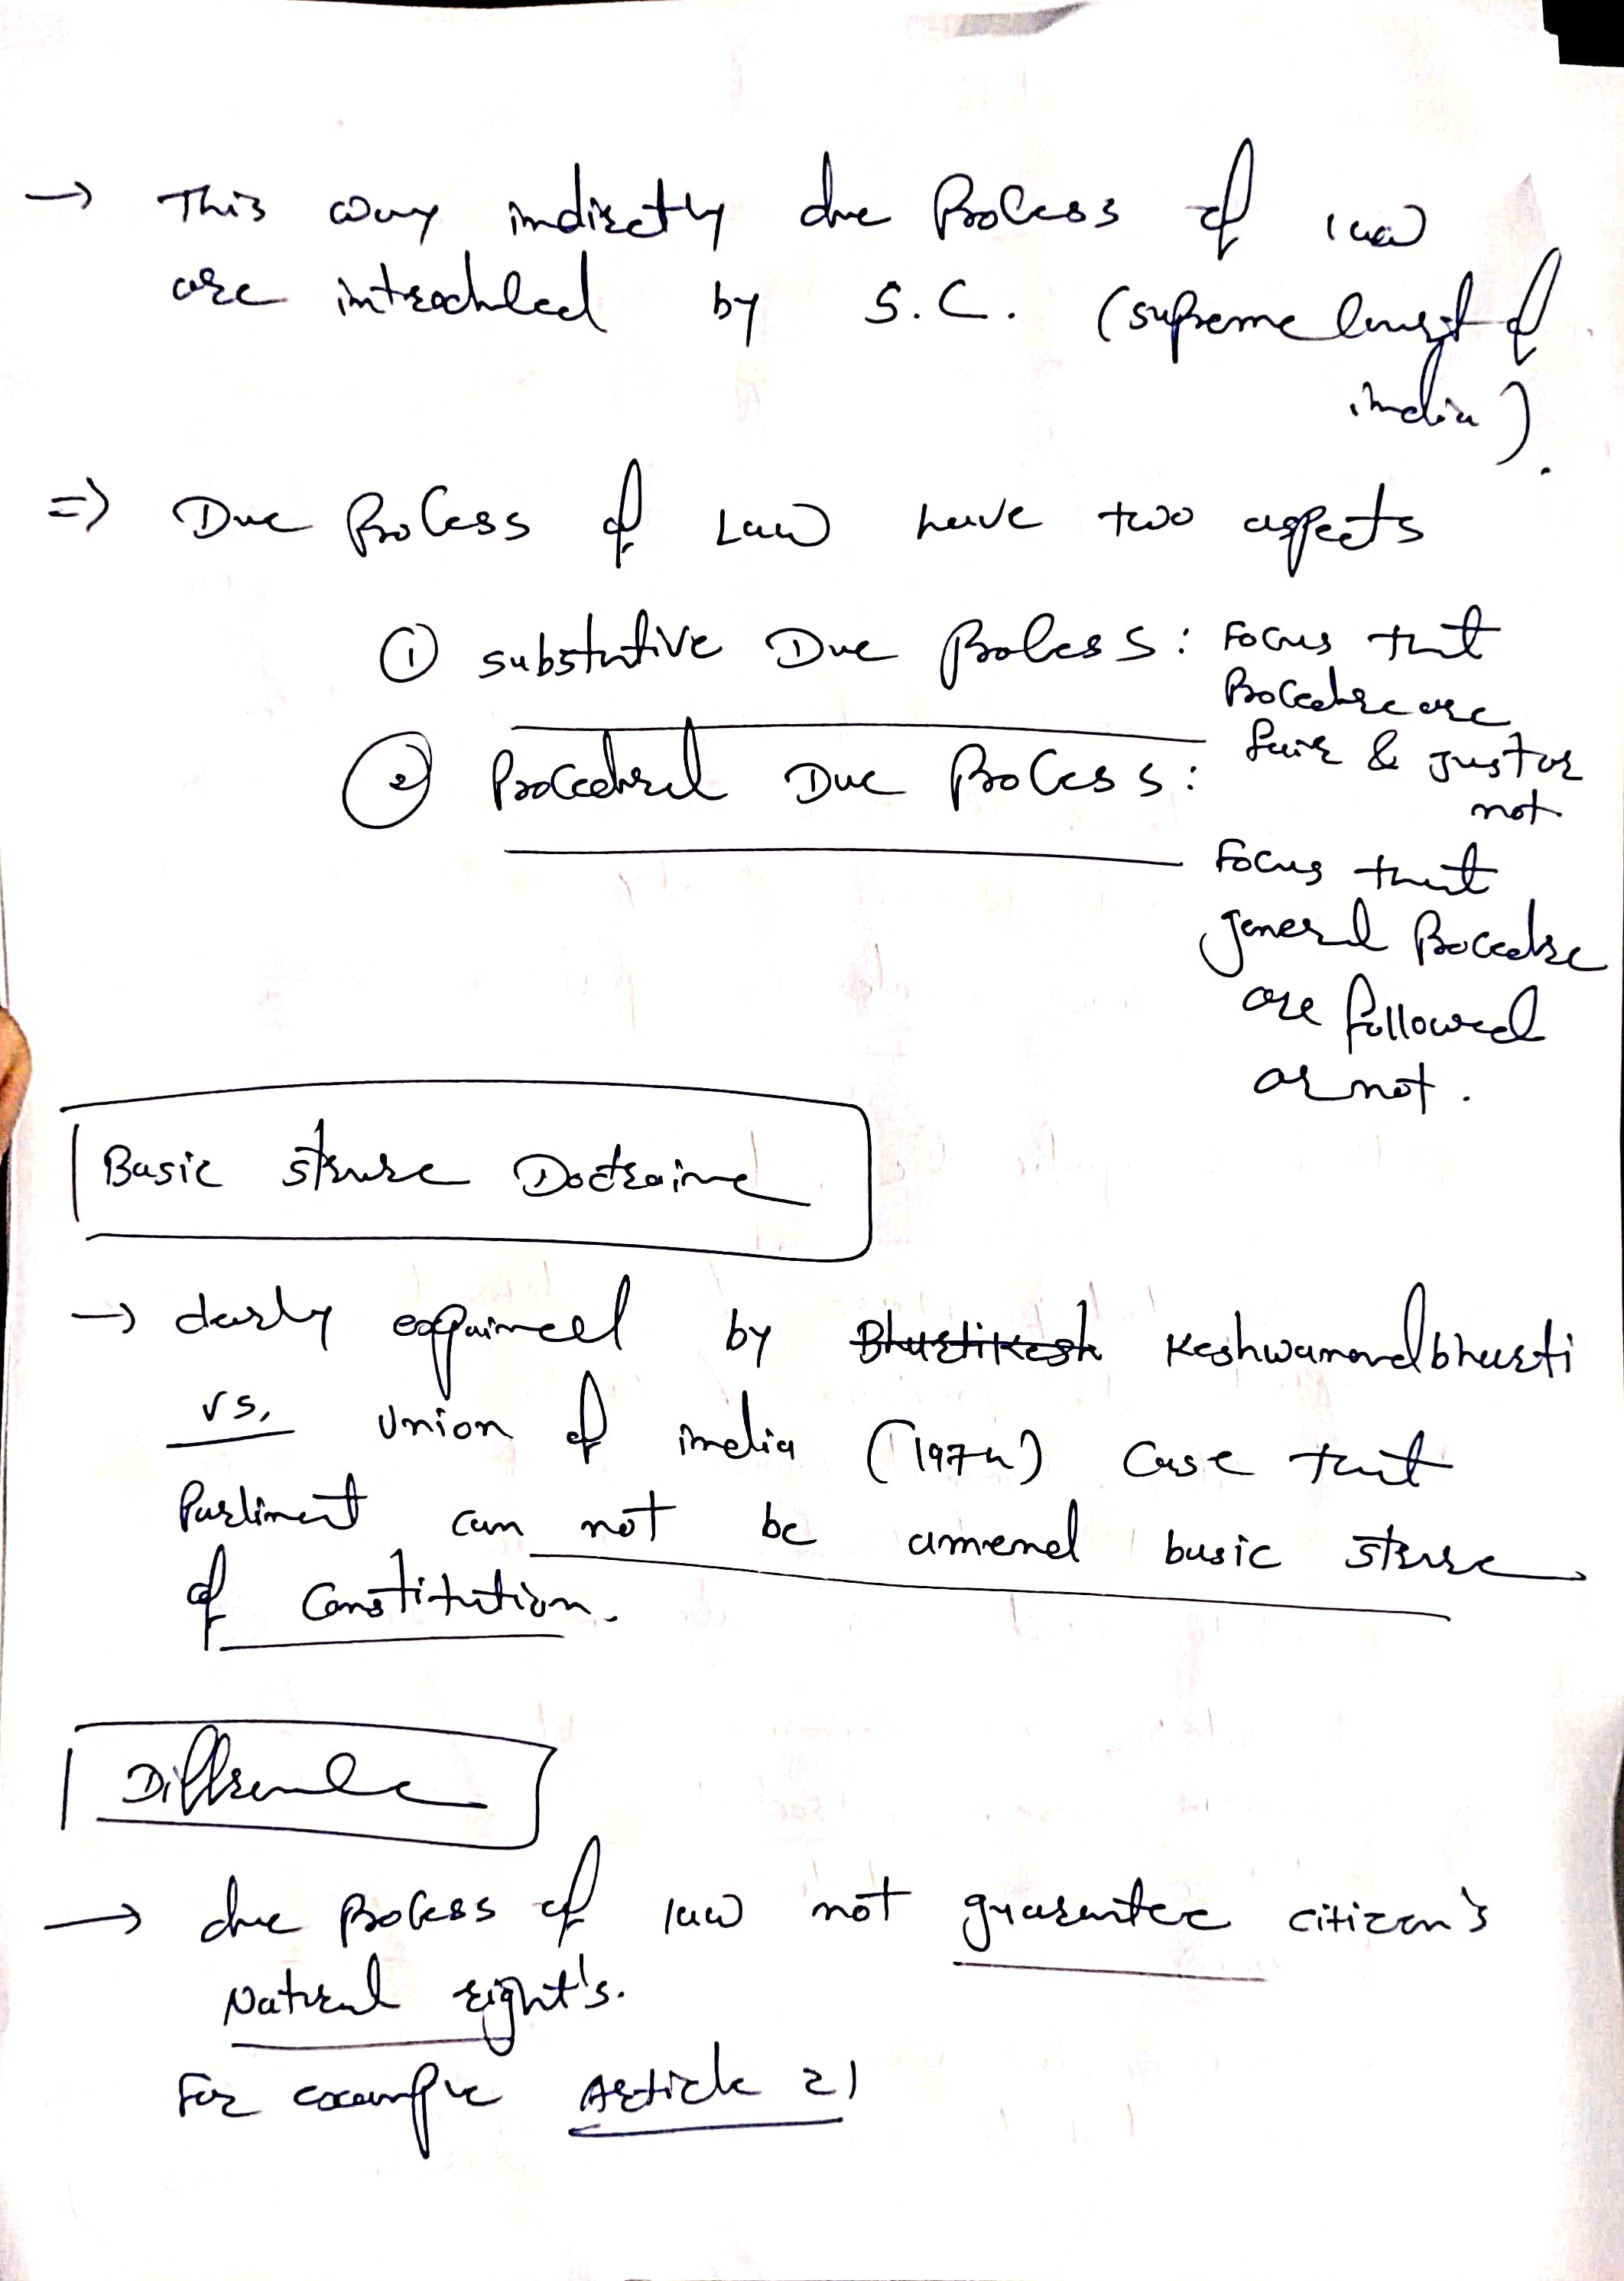 → This way indirectly due Process of law
are introduced by S.C. (supreme Court of
india).
⇒ Due Process of Law have two aspects
① substative Due Process : Focus that
Procedure are
fair & just or
not
② Procedural Due Process :
Focus that
general Procedure
are followed
or not.
Basic strure Doctraine
→ clearly expained by Bhartikesh Keshwanand bharti
vs. Union of india (1974) Case that
Parliment can not be amend basic strure
of Constitution.
Diffrence
→ due Process of law not guarantee citizen's
Natural right's.
For example Article 21